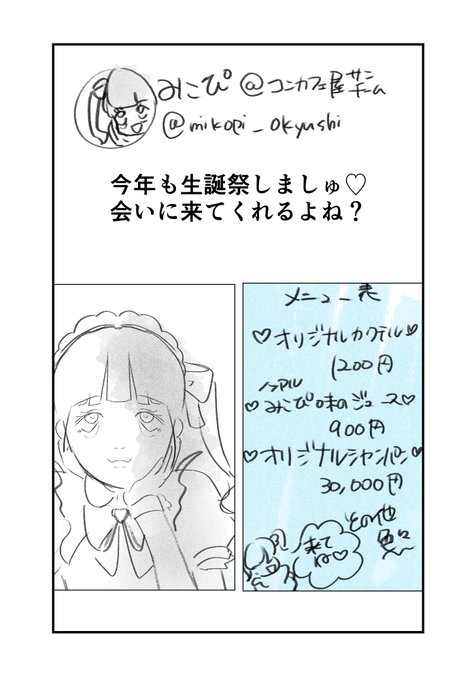 みにぴ@コンカフェ屋
@mikopi_okyushi
今年も生誕祭しましゅ♡
会いに来てくれるよね？
メニュー表
♡オリジナルカクテル♡
1200円
ノンアル
♡みにぴ味のジュース♡
900円
♡オリジナルシャンパン♡
30,000円
その他
来て
ね♡